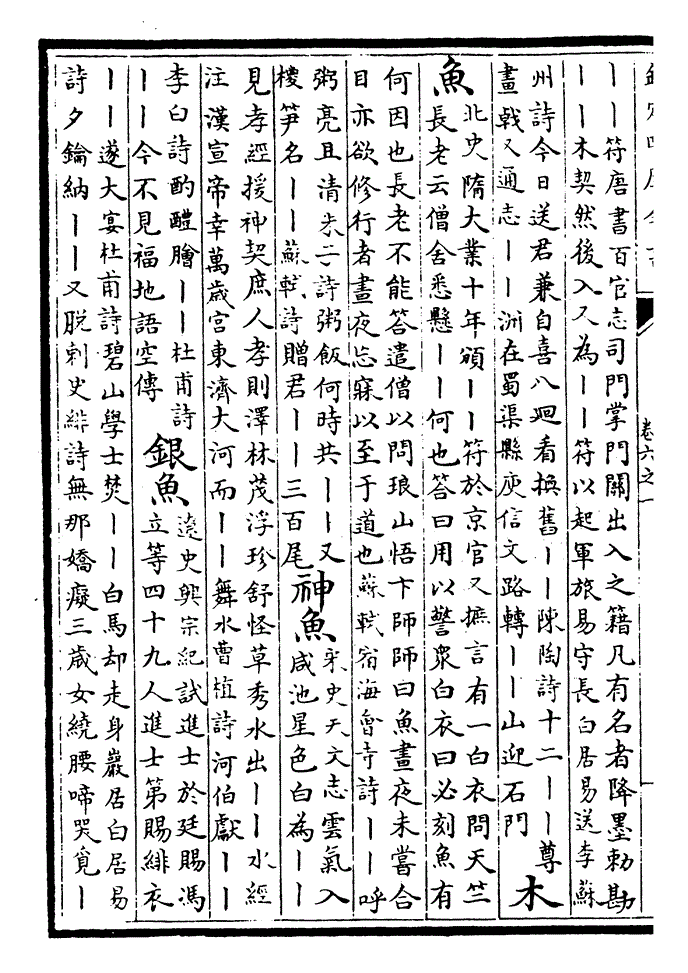 欽定四庫全書
卷六之一
｜｜符唐書百官志司門掌門關出入之籍凡有名者降墨勅勘
｜｜木契然後入又為｜｜符以起軍旅易守長白居易送李蘇
州詩今日送君兼自喜八廻看換舊｜｜陳陶詩十二｜｜尊
畫戟又通志｜｜洲在蜀渠縣庾信文路轉｜｜山迎石門
木
魚
北史隋大業十年頒｜｜符於京官又摭言有一白衣問天竺
長老云僧舍悉懸｜｜何也答曰用以警衆白衣曰必刻魚有
何因也長老不能答遣僧以問琅山悟卞師師曰魚晝夜未嘗合
目亦欲修行者晝夜忘寐以至于道也蘇軾宿海會寺詩｜｜呼
粥亮且清朱子詩粥飯何時共｜｜又
椶笋名｜｜蘇軾詩贈君｜｜三百尾
神魚
宋史天文志雲氣入
咸池星色白為｜｜
見孝經援神契庶人孝則澤林茂浮珍舒怪草秀水出｜｜水經
注漢宣帝幸萬歲宮東濟大河而｜｜舞水曹植詩河伯獻｜｜
李白詩酌醴膾｜｜杜甫詩
｜｜今不見福地語空傳
銀魚
遼史興宗紀試進士於廷賜馮
立等四十九人進士第賜緋衣
｜｜遂大宴杜甫詩碧山學士焚｜｜白馬却走身巖居白居易
詩夕鑰納｜｜又脱刺史緋詩無那嬌癡三歲女繞腰啼哭覓｜